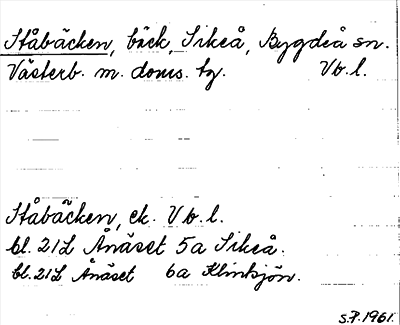 Ståbäcken, bäck, Sikeå, Bygdeå sn.
Västerb. m. doms. tg. Vb. l.
Ståbäcken, ek. Vb. l.
bl. 21L Ånäset 5a Sikeå.
bl. 21L Ånäset 6a Klintsjön.
S.P. 1961.